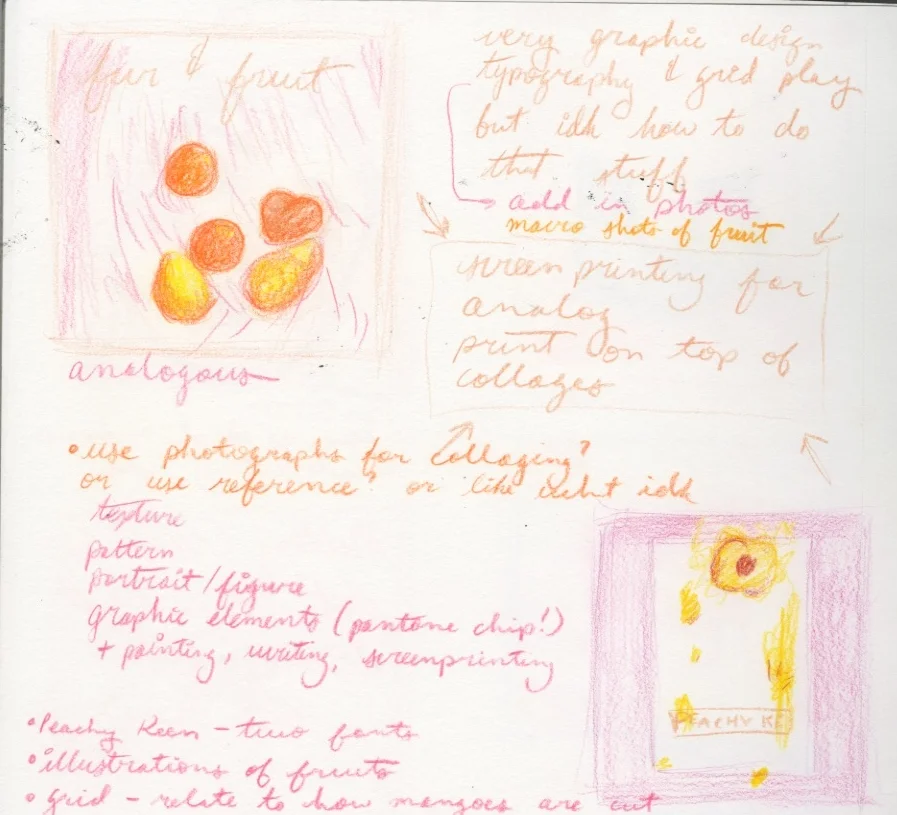 fur & fruit
very graphic design
typography & grid play
but idk how to do
that stuff
add in photos
macro shots of fruit
screenprinting for
analog
print on top of
collages
analogous
• use photographs for collaging?
or use reference? or like what idk
texture
pattern
portrait/figure
graphic elements (pantone chip!)
+ painting, writing, screenprinting
PEACHY KE
• Peachy Keen - two fonts
• illustrations of fruits
• grid - relate to how mangoes are cut